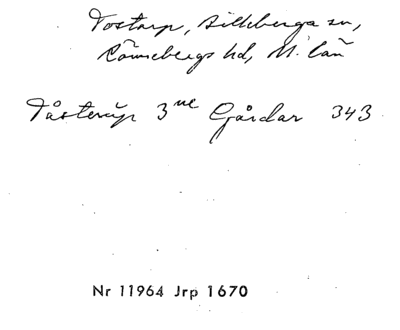 Tostarp, Billeberga sn,
Rönnebergs hd, M. län
Tåsterúp 3ne Gårdar 343
Nr 11964 Jrp 1670